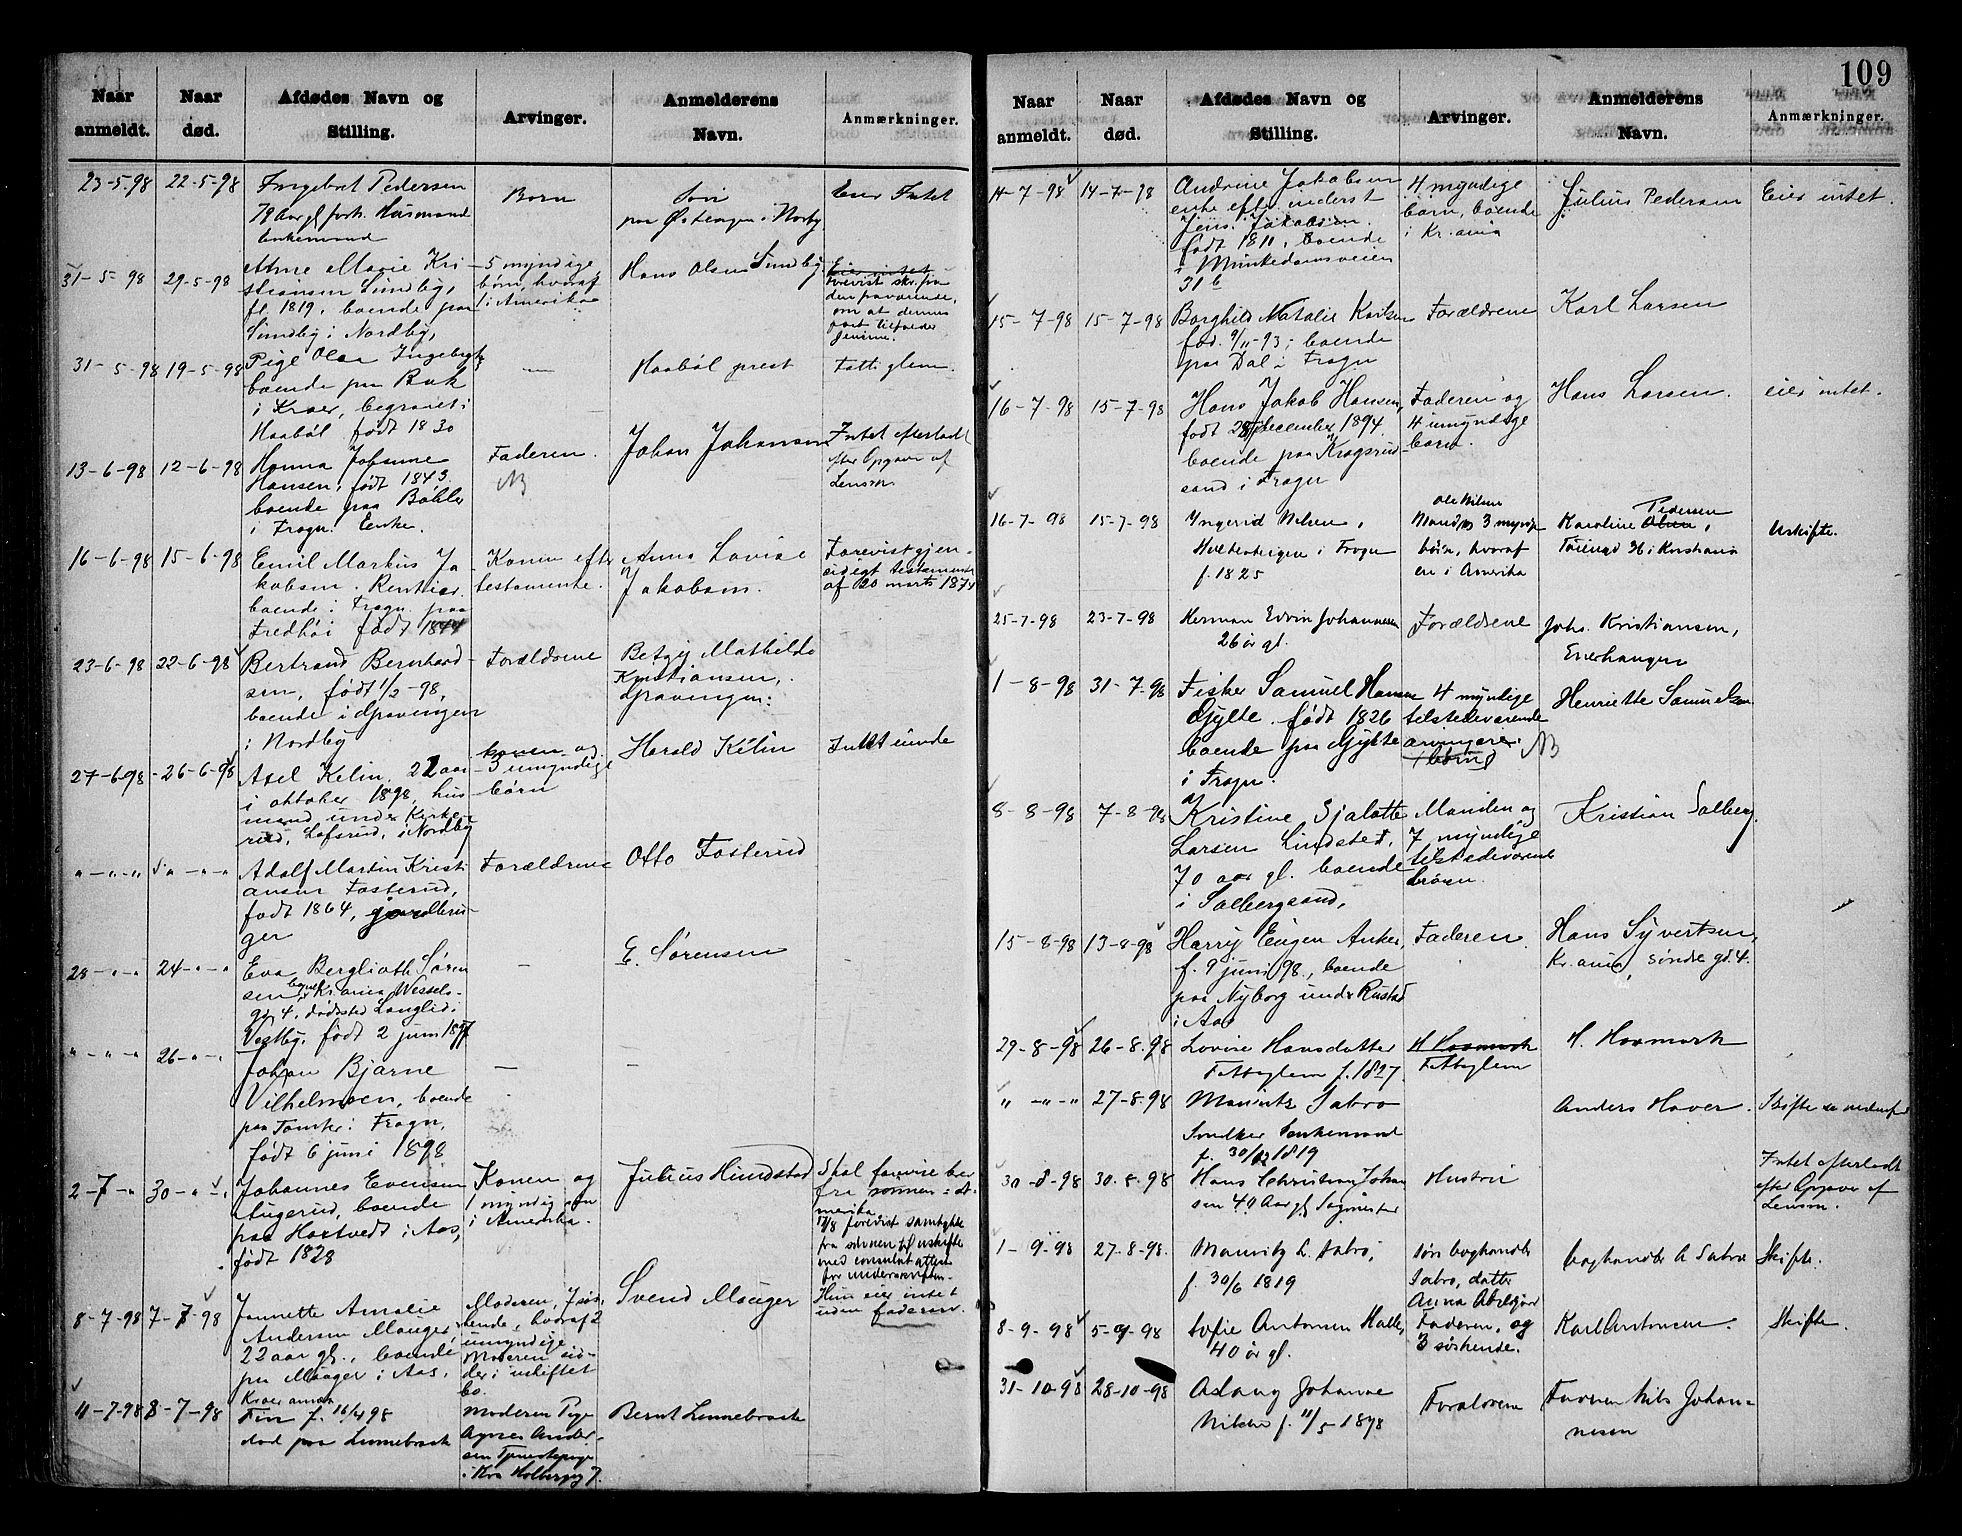 109
Naar anmeldt. Naar død. Afdødes Navn og Stilling. Arvinger. Anmelderens Navn. Anmærkninger.
23-5-98 22-5-98 Ingebret Pedersen Børn Søn Eier Intet
79 Aar gl forh. Husmand paa Østengen i Norby
Enkemand
31-5-98 29-5-98 Anne Marie Kri- 5 myndige Hans Olsen Sundby Eier intet
stiansen Sundby, børn, hvoraf Forevist skr. fra
f. 1819, boende paa i Amerika den
Sundby i Nordby, om at dennes
31-5-98 19-5-98 Pige Olea — Haabøl prest Fattiglem
boende paa Bæk
i Kroer, begravet i
Haabøl født 1830
13-6-98 12-6-98 Hanna Johanne Faderen. Johan Johansen Intet efterladt
Hansen, født 1843 NB efter Opgave af
boende paa Bøhler Lensm.
i Frogn. Enke.
16-6-98 15-6-98 Emil Markus Ja- Konen efter Anna Lovise Forevist gjen-
kobsen. Rentier testamente. Jakobsen. sidigt testamente
boende i Frogn paa af 20 marts 1874
Fredhøi født 1844
23-6-98 22-6-98 Bertrand Bernhard- Forældrene Betzy Mathilde
sen, født 1/2-98, Kristiansen,
boende i Gravingen Gravingen.
i Nordby
27-6-98 26-6-98 Axel Kelin, 22 aar konen og Harald Kelin Intet eiende
i oktober 1898, hus- 3 umyndige
mand under Kirke- børn
rud, Lofsrud, i Nordby
" - " - " " - " - " Adolf Martin Kristi- Forældrene Otto Fosterud
ansen Fosterud,
født 1864, gardbru-
ger
28 - " - " 24 - " - " Eva Berglioth Søren- — E. Sørensen —
sen boende Kr.ania Wessels-
gd 4, dødssted Langlid i
Vestby, født 2 juni 1897
" - " - " 26 - " - " Johan Bjarne — —
Vilhelmsen, boende
paa i Frogn,
født 6 juni 1898
2-7-" 30-"-" Johannes Evensen Konen og Julius Hundstad Skal forevise
Augerud, boende 1 myndig søn fra sønnen i A-
paa Hortvedt i Aas, i Amerika. merika
født 1828 17/8 forevist samtykke
fra sønnen til uskifte
med consulat attest
for underskriften.
8-7-98 7-7-98 Jannette Amalie Moderen, 7 søs- Svend Mauger Hun eier intet
Andersen Mauger, kende, hvoraf 2 uden fadersarv.
22 aar gl., boende umyndige.
paa Mauger i Aas. Moderen sid-
der i uskiftet
bo.
11-7-98 8-7-98 Kroer annex Moderen Pige Bernt Linnebraate
Finn f. 16/4 98 Agnes Ander-
død paa Linnebraate sen Tjenestepige
i Kra Holbergsg 7.
Naar anmeldt. Naar død. Afdødes Navn og Stilling. Arvinger. Anmelderens Navn. Anmærkninger.
14-7-98 14-7-98 Andrine Jakobsen 4 myndige Julius Pedersen Eier intet.
enke efter inderst børn, boende
Jens Jakobsen. i Kr.ania
født 1810, boende
i Munkedamsveien
31 b
15-7-98 15-7-98 Borghild Natalie Karlsen Forældrene Karl Larsen
fød. 9/11-93, boende
paa Dal i Frogn
16-7-98 15-7-98 Hans Jakob Hansen, Faderen og Hans Larsen. eier intet.
født december 1894 4 umyndige
boende paa Krogsrud- børn.
sand i Frogn
16-7-98 15-7-98 Yngerid Nilsen, Ole Nilsen Mand og 3 myndige Karoline Olsen Pedersen, Uskifte.
i Frogn børn, hvoraf Tøiengd 36 i Kristiania
f. 1825 en i Amerika
25-7-98 23-7-98 Herman Edvin Johannesen Forældrene Johs. Kristiansen,
26 år gl.
1-8-98 31-7-98 Fisker Samuel Hansen 4 myndige Henriette Samuelsen
Gylte. født 1826 tilstedeværende
boende paa Gylte arvinger. NB
i Frogn. (børn)
8-8-98 7-8-98 Kristine Sjalotte Manden og Kristian Solberg.
Larsen Lindsted, 7 myndige
70 aar gl. boende tilstedeværende
i Solbergsund, børn.
15-8-98 13-8-98 Harry Eugen Anker, Faderen. Hans Syvertsen,
f. 9 juni 98., boende Kr.ania, søndre gd. 4.
paa Nyborg under Rustad
i Aas
29-8-98 26-8-98 Lovise Hansdatter H Hoxmark H. Hoxmark
Fattiglem f. 1827. Fattiglem
" - " - " 27-8-98 Mauritz Sabro Anders Haver. Skifte se nedenfor
Snedker Enkemand
f. 30/12 1819
30-8-98 30-8-98 Hans Christian Johan- Hustru Intet efterladt
sen 49 Aar gl Sagmester efter Opgave af
Lensm.
1-9-98 27-8-98. Mauritz L. Sabro, Søn boghandler boghandler A Sabro Skifte.
f. 30/6 1819 Sabro, datter
Anna
8-9-98 5-9-98 Sofie Antonsen Halle, Faderen, og Karl Antonsen. Skifte.
40 år gl. 3 søskende.
31-10-98 28-10-98 Aslaug Johanne Forældrene Faderen Nils Johan-
Nilsen f. 11/5-1898 nesen